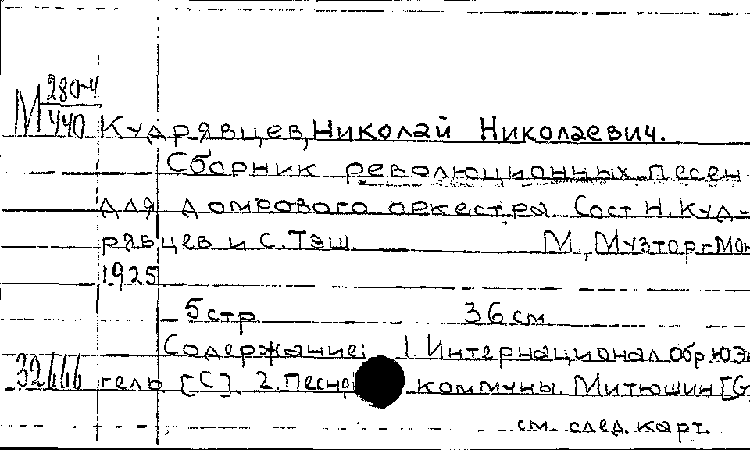 М 280-4
440
Кудрявцев, Николай Николаевич.
Сборник революционных песен
для домрового оркестра. Сост Н. Куд-
рявцев и С. Тэш. М, Музторг Мон
1925
5 стр 36 см
Содержание: 1 Интернационал обр Юэн
32666 гелю [C]. 2. Песня коммуны. Митюшин [G
см. след. карт.